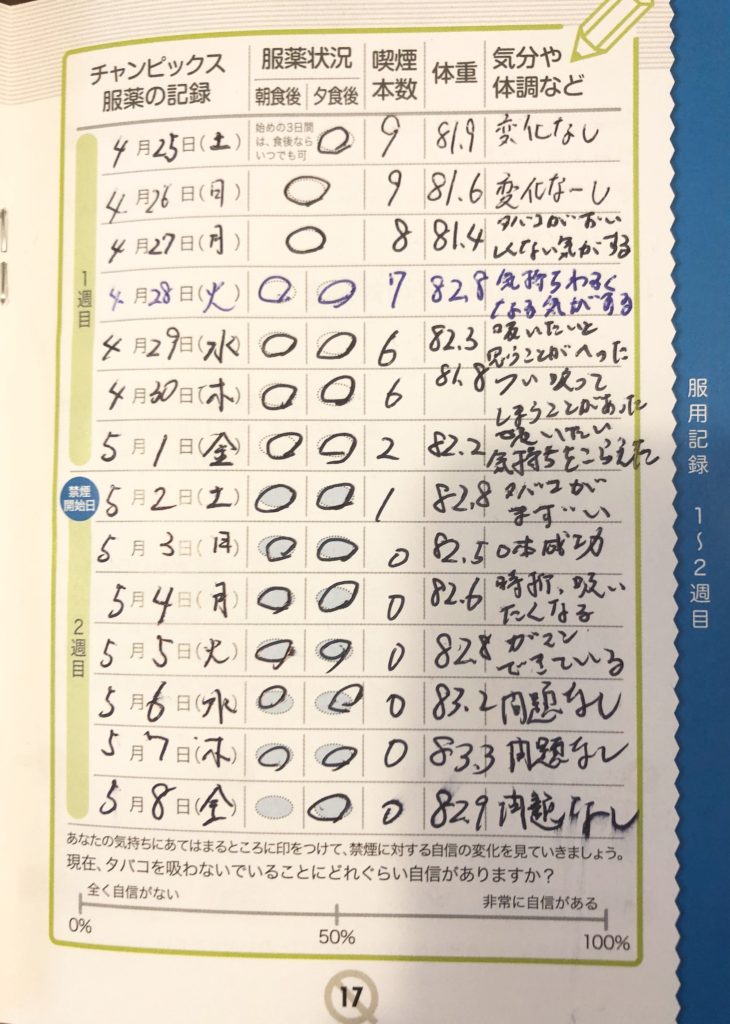 チャンピックス
服薬の記録
服薬状況
朝食後 夕食後
喫煙
本数
体重
気分や
体調など
1週目
4月25日(土) 始めの3日間
は、食後なら
いつでも可 9 81.9 変化なし
4月26日(日) 9 81.6 変化なーし
4月27日(月) 8 81.4 タバコがおい
しくない気がする
4月28日(火) 7 82.8 気持ちわるく
なる気がする
4月29日(水) 6 82.3 吸いたいと
思うことがへった
4月30日(木) 6 81.8 つい吸って
しまうことがあった
5月1日(金) 2 82.2 吸いたい
気持ちをこらえた
禁煙
開始日
5月2日(土) 1 82.8 タバコが
まずい
2週目
5月3日(日) 0 82.5 0本成功
5月4日(月) 0 82.6 時折、吸い
たくなる
5月5日(火) 0 82.8 ガマン
できている
5月6日(水) 0 83.2 問題なし
5月7日(木) 0 83.3 問題なし
5月8日(金) 0 82.9 問題なし
あなたの気持ちにあてはまるところに印をつけて、禁煙に対する自信の変化を見ていきましょう。
現在、タバコを吸わないでいることにどれぐらい自信がありますか?
全く自信がない 非常に自信がある
0% 50% 100%
17
服用記録 1〜2週目